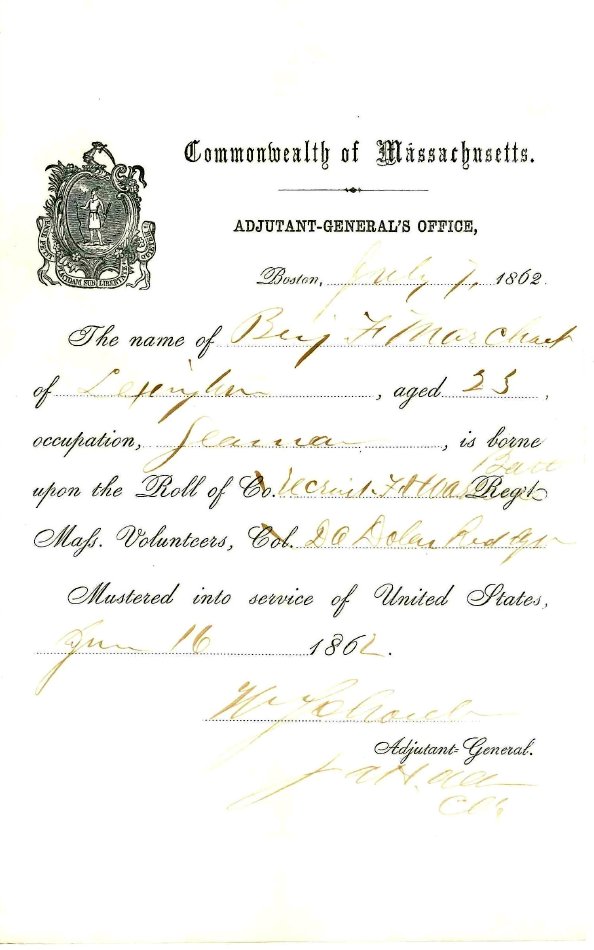 Commonwealth of Massachusetts.
ADJUTANT-GENERAL'S OFFICE,
ENSE PETIT PLACIDAM SUB LIBERTATE QUIETEM
Boston, July 7, 1862.
The name of Benj F Marchant
of Lexington, aged 23,
occupation, Seaman, is borne
upon the Roll of Co. Recruit Reg't
Mass. Volunteers, Col.
Mustered into service of United States,
June 16 1862.
Wm Schouler
Adjutant-General.